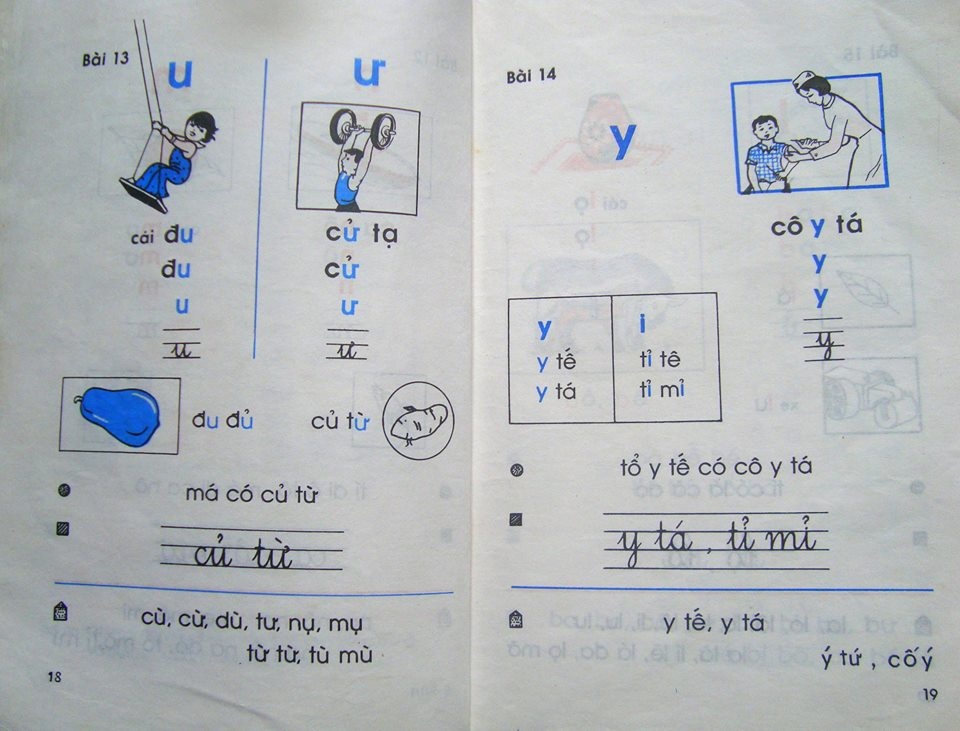 Bài 13
u
ư
cái đu
đu
u
u
cử tạ
cử
ư
ư
đu đủ
củ từ
má có củ từ
củ từ
cù, cừ, dù, tư, nụ, mụ
từ từ, tù mù
18
Bài 14
y
cô y tá
y
y
y
y i
y tế tỉ tê
y tá tỉ mỉ
tổ y tế có cô y tá
y tá, tỉ mỉ
y tế, y tá
ý tứ, cố ý
19